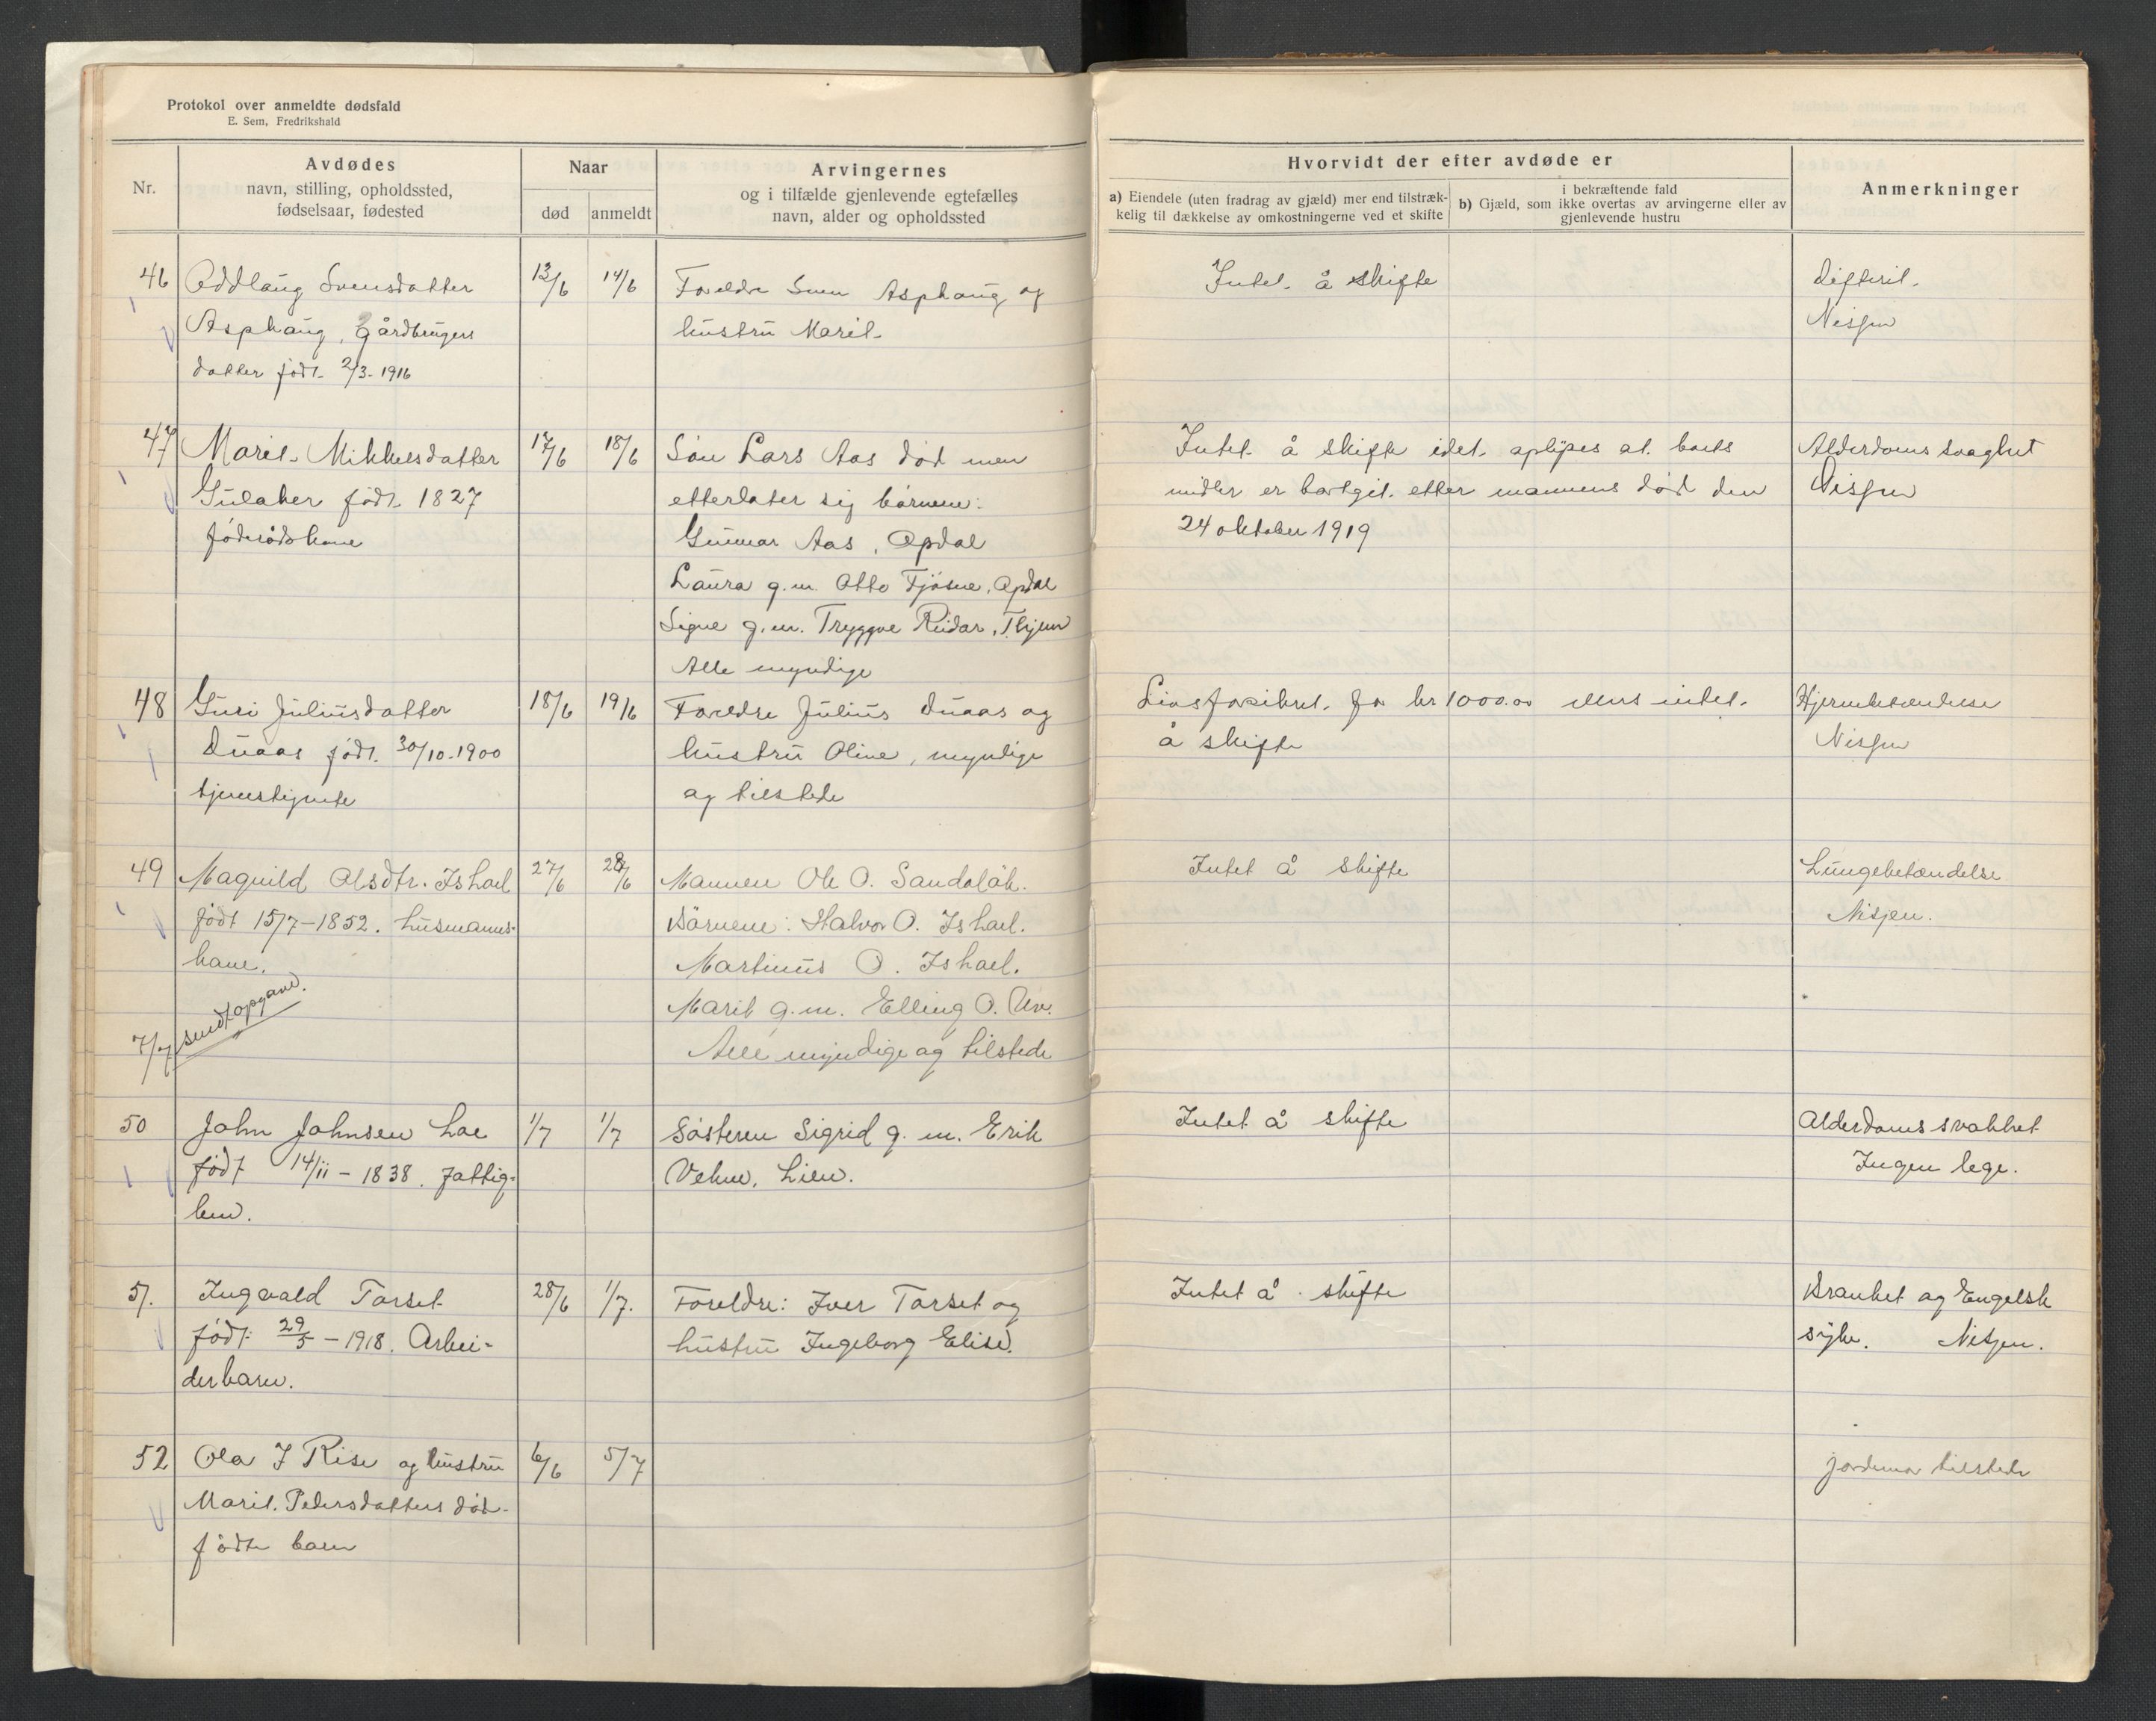 Protokol over anmeldte dødsfald
E. Sem, Fredrikshald
Nr.
Avdødes
navn, stilling, opholdssted,
fødselsaar, fødested
Naar
død
anmeldt
Arvingernes
og i tilfælde gjenlevende egtefælles
navn, alder og opholdssted
Hvorvidt der efter avdøde er
a) Eiendele (uten fradrag av gjæld) mer end tilstræk-
kelig til dækkelse av omkostningerne ved et skifte
i bekræftende fald
b) Gjæld, som ikke overtas av arvingerne eller av
gjenlevende hustru
Anmerkninger
46
Oddlaug Svensdatter
Asphaug, Gårdbrugers
datter født 2/3-1916
13/6
14/6
Foreldre Sven Asphaug og
hustru Marit
Intet å skifte
Difterit.
Nisjen
47
Marit Mikkelsdatter
Gulaker født 1827
føderådskone
17/6
18/6
Søn Lars Aas død men
etterlater sig børnene:
Gunnar Aas, Opdal
Laura g.m. Otto Fjøsne, Opdal
Signe g.m. Tryggve Reidar, T.hjem
Alle myndige
Intet å skifte idet oplyses at boets
midler er bortgit etter mannens død den
24 oktober 1919
Alderdomssvaghet
Nisjen
48
Guri Juliusdatter
Duaas født 30/10-1900
tjenestejente
18/6
19/6
Foreldre Julius Duaas og
hustru Oline, myndige
og tilstede
Livsforsikret for kr 1000.00 ellers intet
å skifte
Hjernebetændelse
Nisjen
49
Magnild Olsdtr. Ishoel
født 15/7-1852. husmanns-
kone.
7/7 sendt opgave.
27/6
28/6
Mannen Ole O. Sandsløk.
Børnene: Halvor O. Ishoel.
Martinus O. Ishoel.
Marit g.m. Elling O. Uv.
Alle myndige og tilstede
Intet å skifte
Lungebetændelse
Nisjen.
50
John Johnsen Loe
født 14/11-1838. fattig-
lem.
1/7
1/7
Søsteren Sigrid g.m. Erik
Vekve, Lien.
Intet å skifte
Alderdomssvakhet
Ingen lege.
51.
Ingvald Torset
født 29/5-1918. Arbei-
derbarn.
28/6
1/7.
Foreldre: Iver Torset og
hustru Ingeborg Elise.
Intet å skifte
Branket og Engelsk
syke. Nisjen.
52
Ola J Rise og hustru
Marit Pedersdatters død-
fødte barn
6/6
5/7
jordemor tilstede